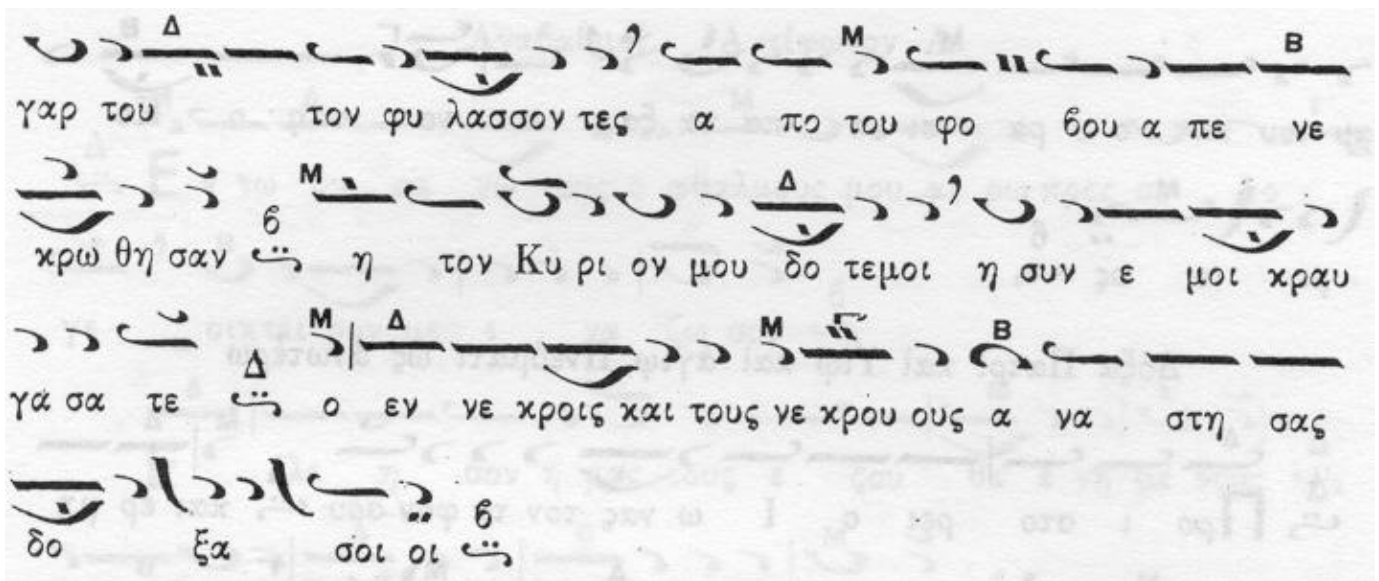 Δ Μ Β
γαρ του τον φυ λασσον τες α πο του φο βου α πε νε
Μ Δ
κρω θη σαν β η τον Κυ ρι ον μου δο τεμοι η συν ε μοι κραυ
Μ Δ Μ Β
γα σα τε Δ ο εν νε κροις και τους νε κρου ους α να στη σας
δο ξα σοι οι β